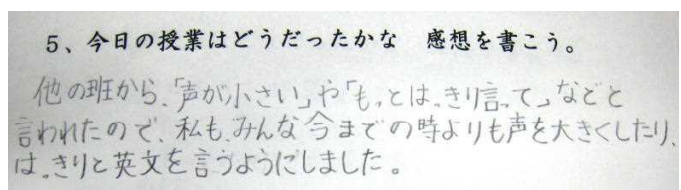 5、今日の授業はどうだったかな　感想を書こう。
他の班から、「声が小さい」や「もっとはっきり言って」などと
言われたので、私も、みんな今までの時よりも声を大きくしたり、
はっきりと英文を言うようにしました。